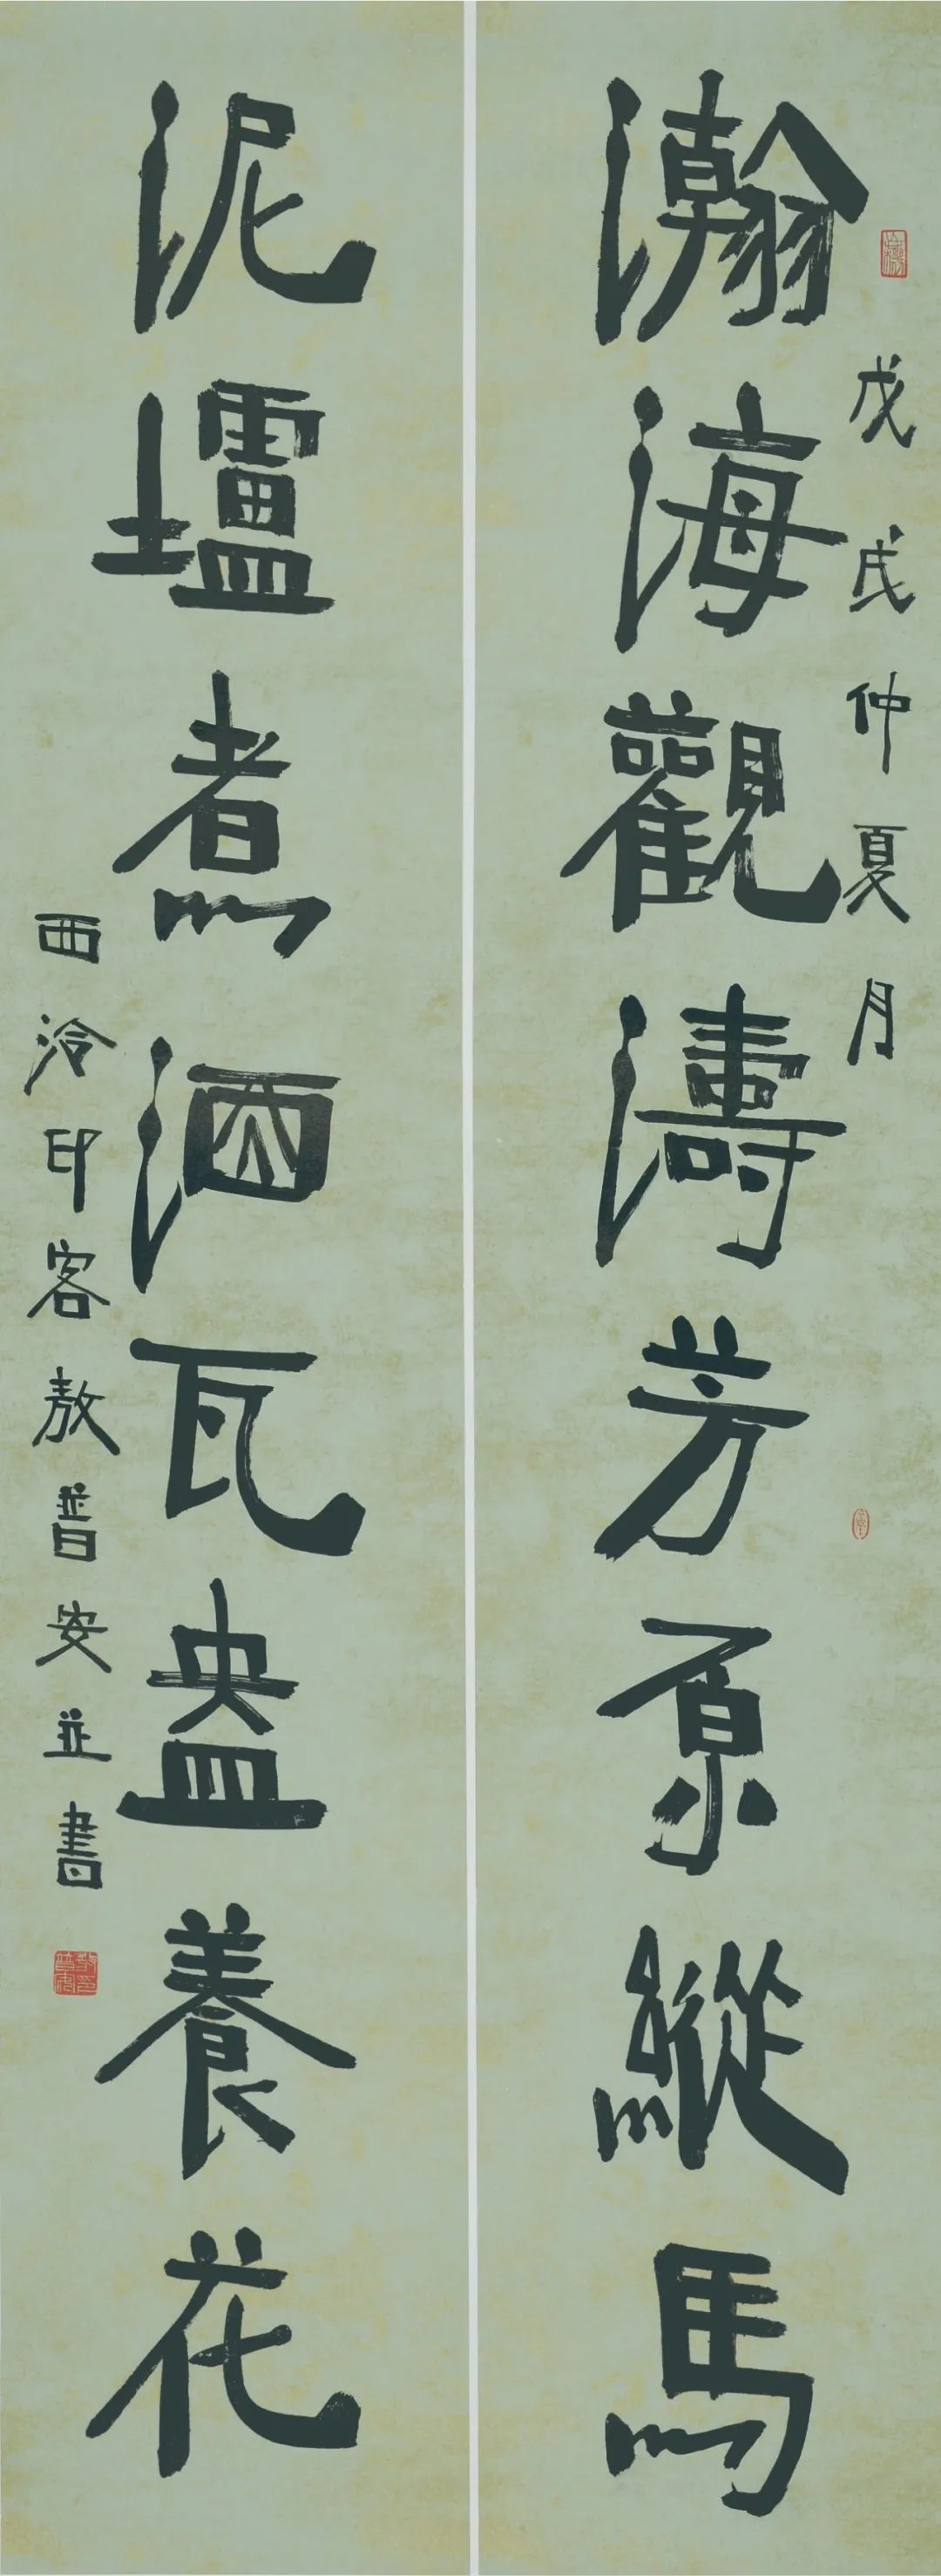 戊戌仲夏月
瀚海觀濤芳原縱馬
泥壚煮酒瓦盎養花
西泠印客敖普安並書